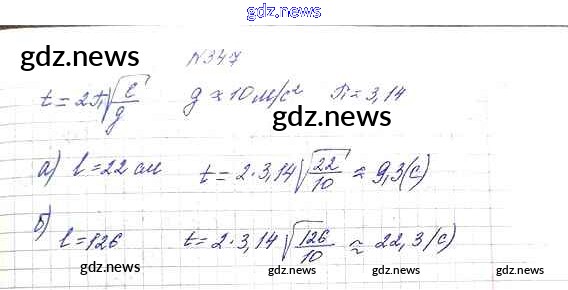 gdz.news
gdz.news
N347
t = 2π√(l/g) g ≈ 10 м/с² π = 3,14
gdz.news
а) l = 22 см t = 2·3,14√(22/10) ≈ 9,3(с)
gdz.news
б) l = 126 t = 2·3,14√(126/10) ≈ 22,3(с)
gdz.news gdz.news gdz.news gdz.news